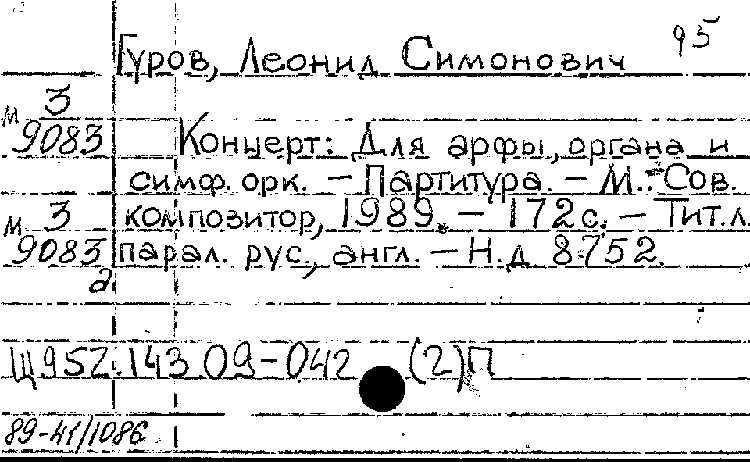 95
Гуров, Леонид Симонович
М 3
9083
Концерт: Для арфы, органа и
симф. орк. — Партитура. — М.: Сов.
М 3
9083
а
композитор, 1989. — 172 с. — Тит.л.
парал. рус., англ. — Н.д 8752.
Щ952.143.09-042 (2)П
89-41/1086